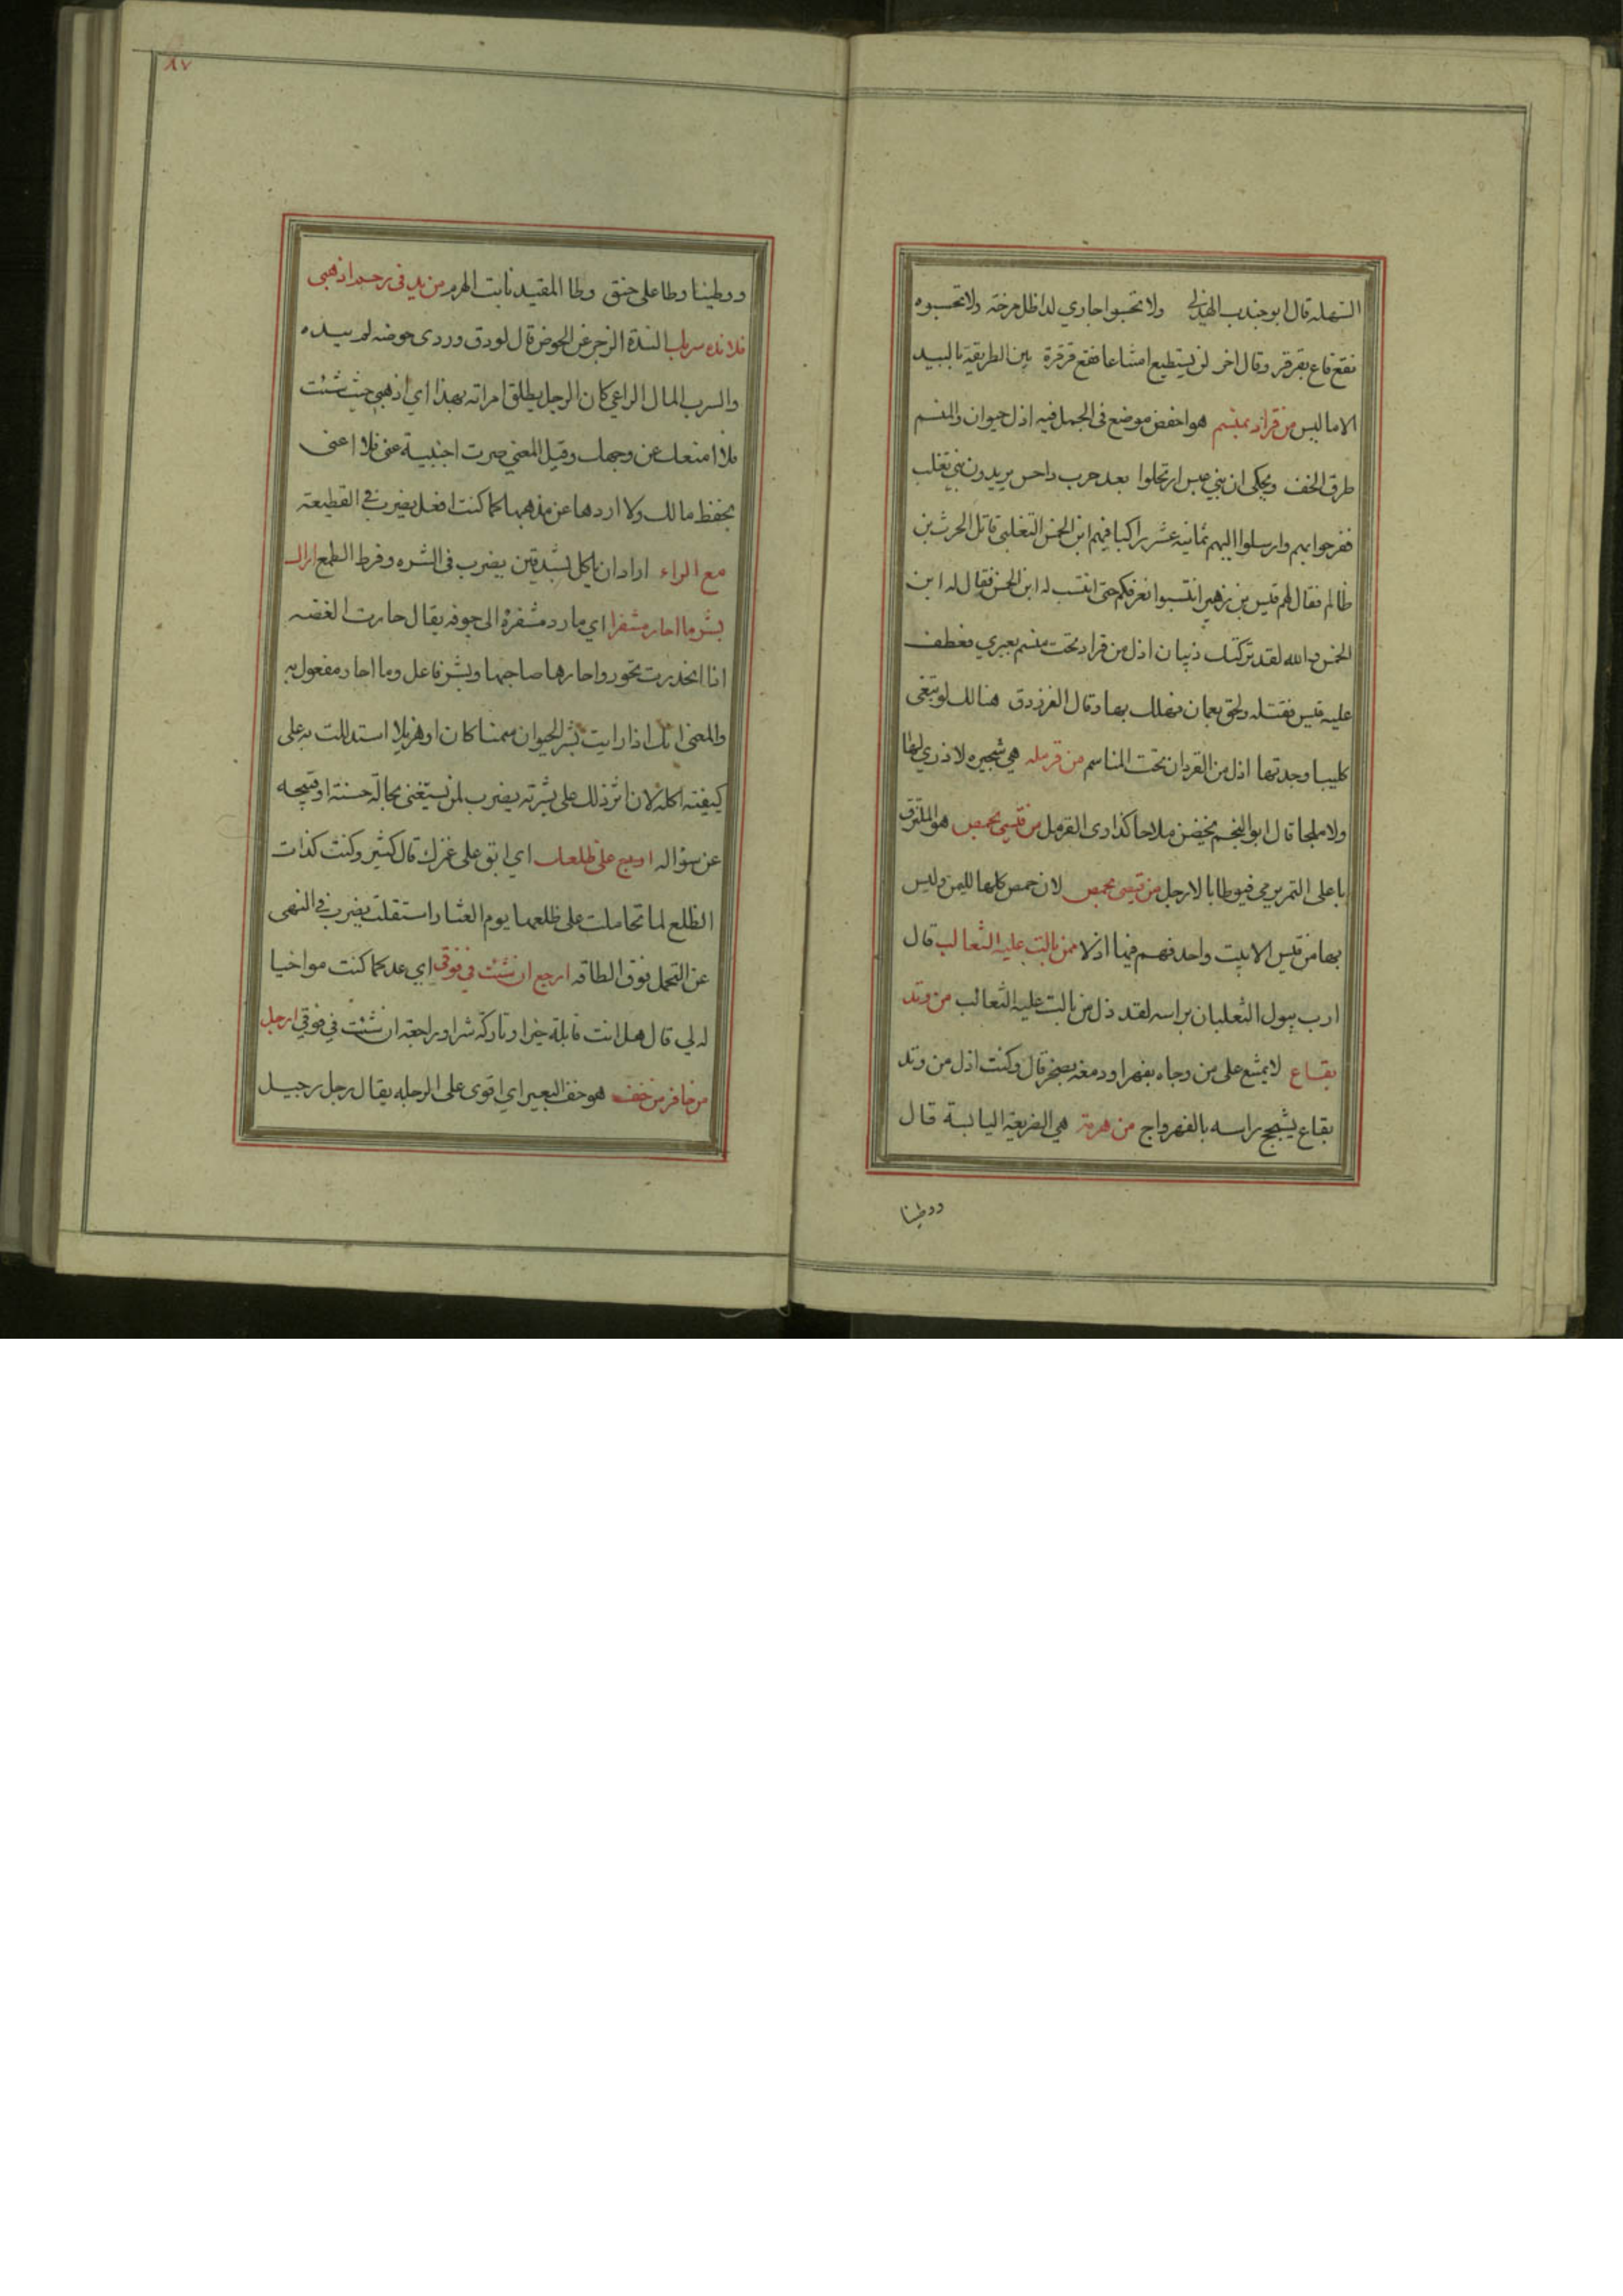 السهلة قال ابو جندب الهذلي ولا تحسبوا جاري لدا ظل مرخة ولا تحسبوه
نقع قاع بقرقر وقال اخر لن يستطيع امتناعا فقع قرقرة بين الطريقة بالبيد
الاماليس من قراد بمنسم هو اخفض موضع في الجمل فيه اذل حيوان والمنسم
طرق الخف ويحكى ان بني عبس ارتحلوا بعد حرب داحس يريدون بني تغلب
ففرحوا بهم وارسلوا اليهم ثمانية عشر راكبا فيهم ابن الخمس التغلبي قاتل الحرث بن
ظالم فقال لهم قيس بن زهير انتسبوا نعرفكم حتى انتسب له ابن الخمس فقال له ابن
الخمس والله لقد تركتك ذبيان اذل من قراد تحت منسم بعيري فعطف
عليه قيس فقتله ولحق بعمان فهلك بها وقال الفرزدق هنالك لو تبغي
كليبا وجدتها اذل من القردان تحت المناسم من قرمله هي شجيره لا ذري لها
ولا ملجا قال ابو النجم يخضن ملاحا كذاوى القرمل من قيسي بحمص هو الملتزق
باعلى التمر يرمي فيوطا بالارجل من قيسي بحمص لان حمص كلها لليمن وليس
بها من قيس الا بيت واحد فهم فيها اذلا ممن بالت عليه الثعالب قال
ارب يبول الثعلبان براسه لقد ذل من بالت عليه الثعالب من وتد
بقاع لا يمتنع على من وجاه بفهر او دمغه بصخر قال وكنت اذل من وتد
بقاع يشجج راسه بالفهر واج من هرمة هي الضريعة اليابسة قال
ووطينا
٨٧
ووطينا وطا على حنق وطا المقيد نابت الهرم من يد في رحم اذهبي
فلا انده سربك الندة الزجر عن الحوض قال لو دق وردى حوضه لم ينده
والسرب المال الراعي كان الرجل يطلق امراته بهذا اي اذهبي حيث شئت
فلا امنعك عن وجهك وقيل المعني صرت اجنبية عني فلا اعني
بحفظ مالك ولا اردها عن مذهبها كما كنت افعل يضرب في القطيعة
مع الراء اراد ان ياكل بشدقين يضرب في الشره وفرط الطمع اراك
بشر ما احار مشفرا اي ما رد مشفره الى جوفه يقال حارت الغصه
اذا انحدرت تحور واحارها صاحبها وبشر فاعل وما احار مفعول به
والمعنى انك اذا رايت بشر الحيوان سمنا كان او هزيلا استدللت به على
كيفية اكله لان اثر ذلك على بشرته يضرب لمن يستغني بحالة حسنة او قبيحه
عن سؤاله اربع على ظلعك اي ابق على غمزك قال كثير وكنت كذات
الظلع لما تحاملت على ظلعها يوم العثار استقلت يضرب في النهي
عن التحمل فوق الطاقه ارجع ان شئت في فوقي اي عد كما كنت مواخيا
له لي قال هل انت قابلة خيرا وتاركة شرا وراجعة ان شئت في فوقي ارجل
من حافر من خف هو خف البعير اي اقوى على الرحله يقال رجل رجيل